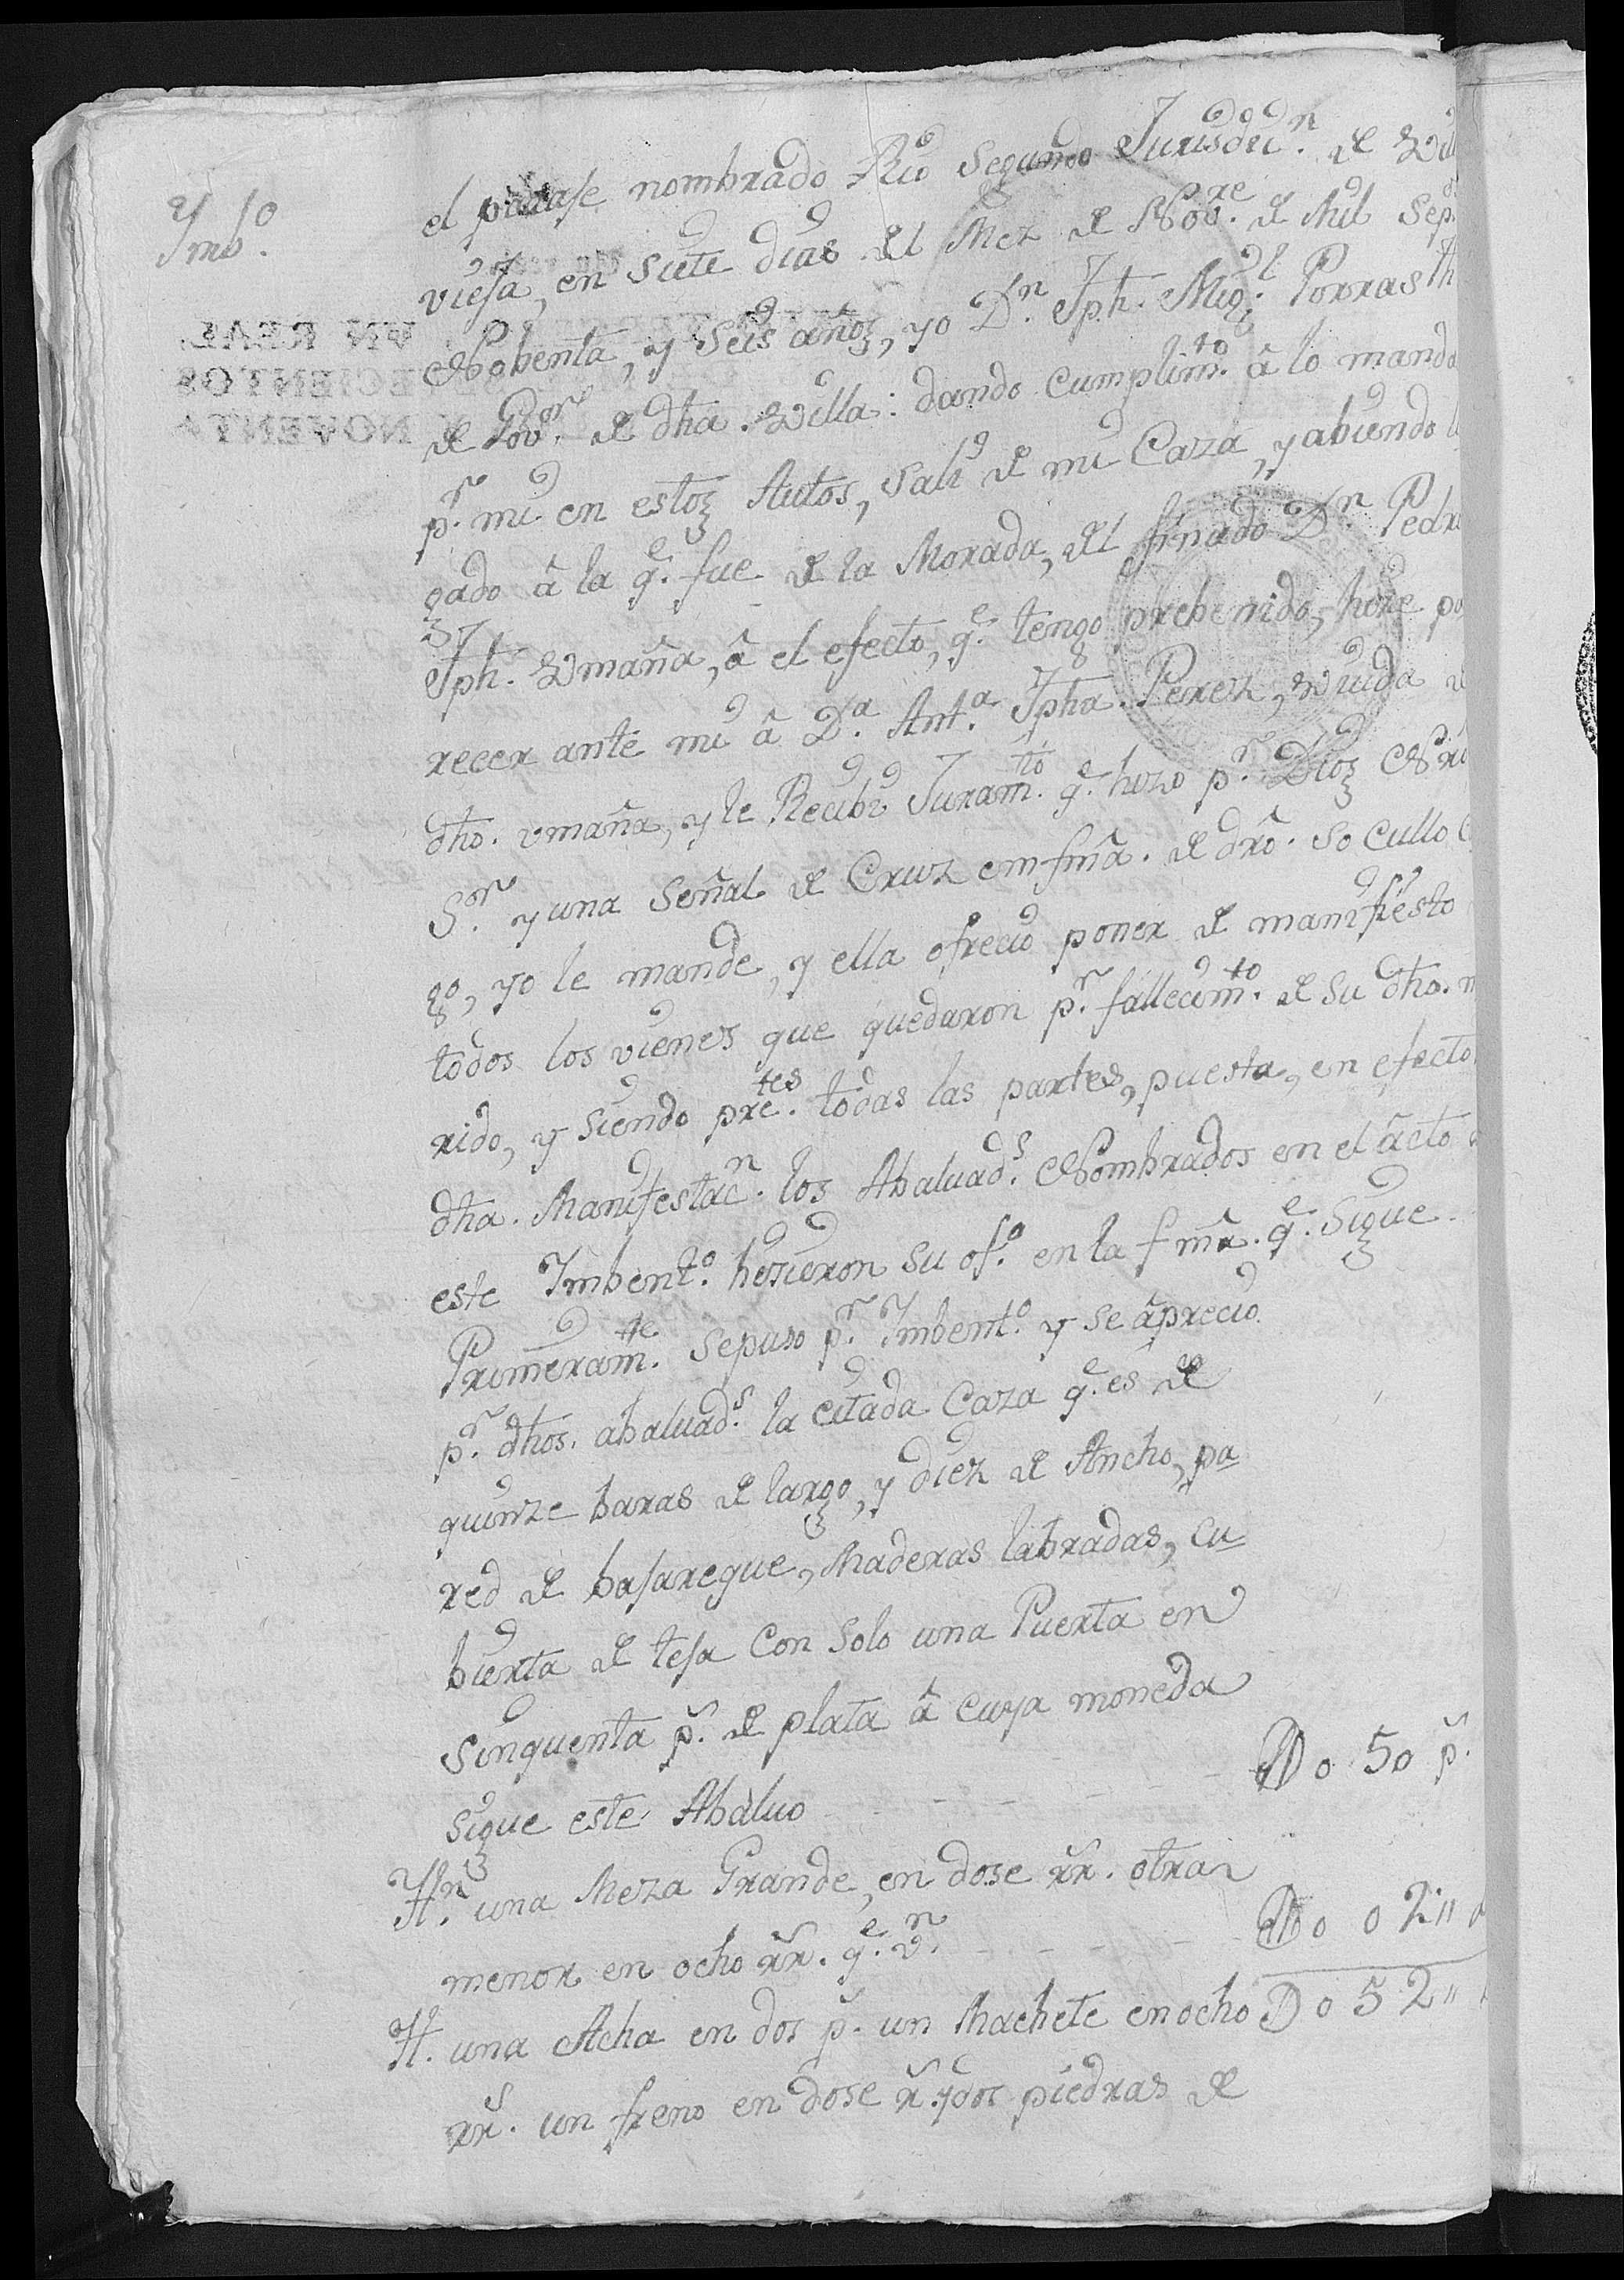 Ymb.to
el parage nombrado Rio Segundo Jurisdic.n de Vill
vieja, en siete dias del Mez de Nov.re de Mil Sep.
Nobenta, y Seis años, yo D.n Jph. Mig.l Porras th
de Gov.r de dha. Villa: dando cumplim.to â lo manda
p.r mi en estos Autos, Sali de mi Caza, y abiendo ll
gado â la q.e fue de la Morada, del finado D.n Pedro
Jph. Vmaña, â el efecto, q.e tengo prebenido, hize pa
recer ante mi â D.a Ant.a Jpha. Perez, Viuda de
dho. vmaña, y le Recibi Juram.to q.e hizo p.r Dios Nro
S.r y una Señal de Cruz em fmâ. de drô. so cullo c
go, yo le mande, y ella ofrecio poner de manifiesto
todos los vienes que quedaron p.r fallecim.to de su dho. m
rido, y siendo pre.tes todas las partes, puesta, en efecto
dha. Manifestac.n los Abaluad.s Nombrados en el âcto d
este Imbent.o hizieron su of.o en la fmâ. q.e Sigue
Primeram.te se puso p.r Imbent.o y se âprecio
p.r dhos. abaluad.s la citada Caza q.e es de
quinze baras de largo, y diez de Ancho, pa
red de bajareque, Maderas labradas, cu
bierta de teja con solo una Puerta en
Sinquenta p.s de plata â cuya moneda
sigue este Abaluo - - - - - - - D o 50 p.s
Yt.n una Meza Grande, en dose rr. otra
menor en ocho rr. q.e v.n - - - - - D o o 2 "
Yt. una Acha en dos p.s un Machete en ocho D o 5 2 "
rr.s un freno en dose r.s y dos piedras de
VN REAL
SETECIENTOS
NOVENTA